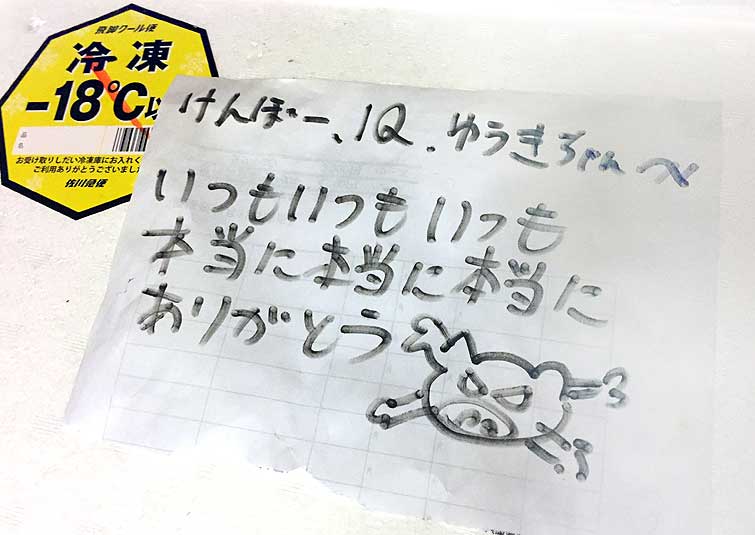 飛脚クール便
冷凍
-18℃以
品名
お受け取りしだい冷凍庫にお入れく
ご利用ありがとうございまし
佐川急便
けんぼー、IQ、ゆうきちゃんへ
いつもいつもいつも
本当に本当に本当に
ありがとう